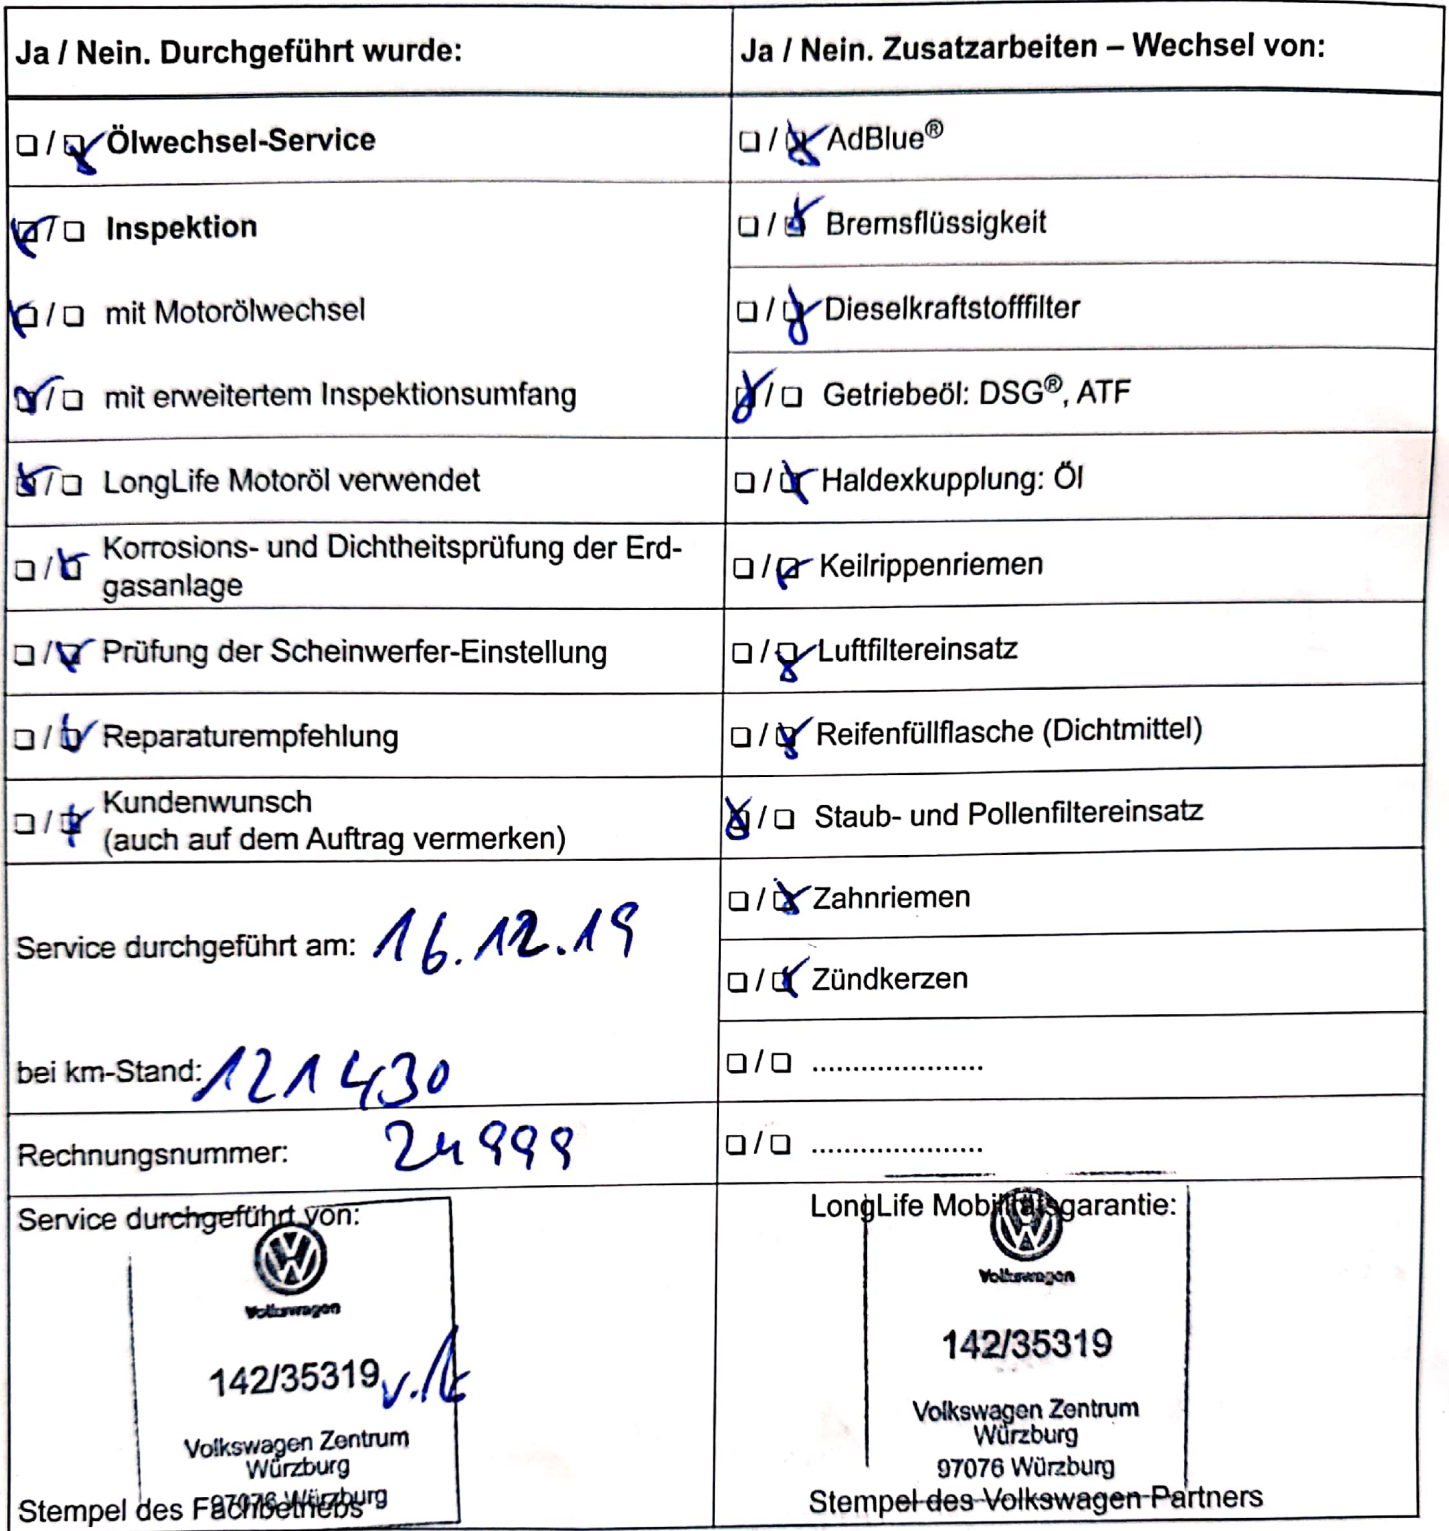 Ja / Nein. Durchgeführt wurde:
☐ / ☑ Ölwechsel-Service
☑ / ☐ Inspektion
☑ / ☐ mit Motorölwechsel
☑ / ☐ mit erweitertem Inspektionsumfang
☑ / ☐ LongLife Motoröl verwendet
☐ / ☑ Korrosions- und Dichtheitsprüfung der Erd-
gasanlage
☐ / ☑ Prüfung der Scheinwerfer-Einstellung
☐ / ☑ Reparaturempfehlung
☐ / ☑ Kundenwunsch
(auch auf dem Auftrag vermerken)
Service durchgeführt am: 16.12.19
bei km-Stand: 121430
Rechnungsnummer: 24999
Service durchgeführt von:
Volkswagen
142/35319
Volkswagen Zentrum
Würzburg
97076 Würzburg
Stempel des Fachbetriebs
Ja / Nein. Zusatzarbeiten – Wechsel von:
☐ / ☑ AdBlue®
☐ / ☑ Bremsflüssigkeit
☐ / ☑ Dieselkraftstofffilter
☑ / ☐ Getriebeöl: DSG®, ATF
☐ / ☑ Haldexkupplung: Öl
☐ / ☑ Keilrippenriemen
☐ / ☑ Luftfiltereinsatz
☐ / ☑ Reifenfüllflasche (Dichtmittel)
☑ / ☐ Staub- und Pollenfiltereinsatz
☐ / ☑ Zahnriemen
☐ / ☑ Zündkerzen
☐ / ☐ .....................
☐ / ☐ .....................
LongLife Mobilitätsgarantie:
Volkswagen
142/35319
Volkswagen Zentrum
Würzburg
97076 Würzburg
Stempel des Volkswagen Partners